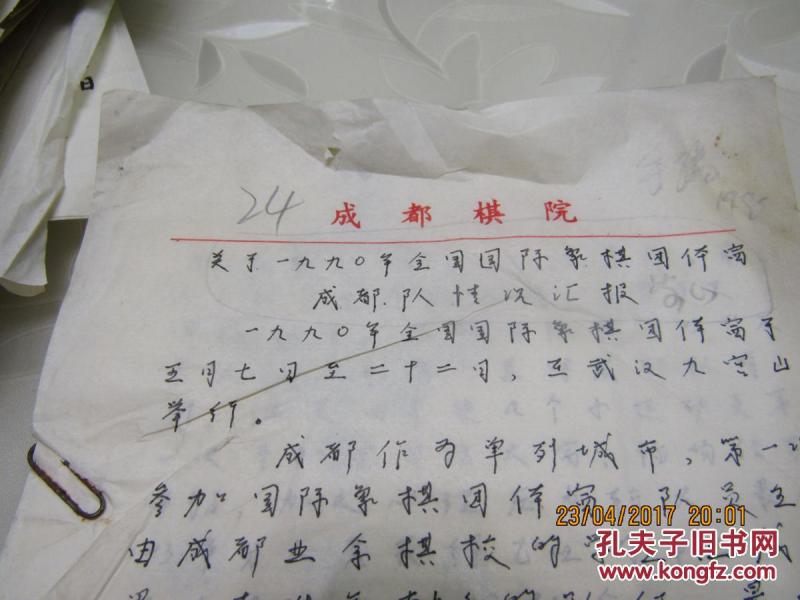 日
24 成都棋院
关于一九九〇年全国国际象棋团体赛
成都队情况汇报
一九九〇年全国国际象棋团体赛于
五月七日至二十二日，在武汉九宫山
举行。
成都作为单列城市，第一次
参加国际象棋团体赛，队员全
由成都业余棋校的学
23/04/2017 20:01
孔夫子旧书网
www.kongfz.com